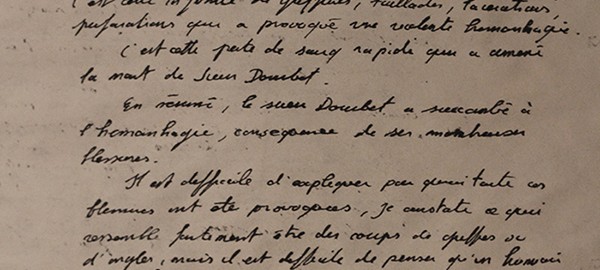 c'est cette infinité de griffures, taillades, lacérations,
perforations qui a provoqué une violente hémorrhagie.
C'est cette perte de sang rapide qui a amené
la mort de Sieur Doucbet.
En résumé, le sieur Doucbet a succombé à
l'hémorrhagie, conséquence de ses nombreuses
blessures.
Il est difficile d'expliquer par qui toutes ces
blessures ont été provoquées, je constate ce qui
ressemble fortement être des coups de griffes ou
d'ongles, mais il est difficile de penser qu'un humain